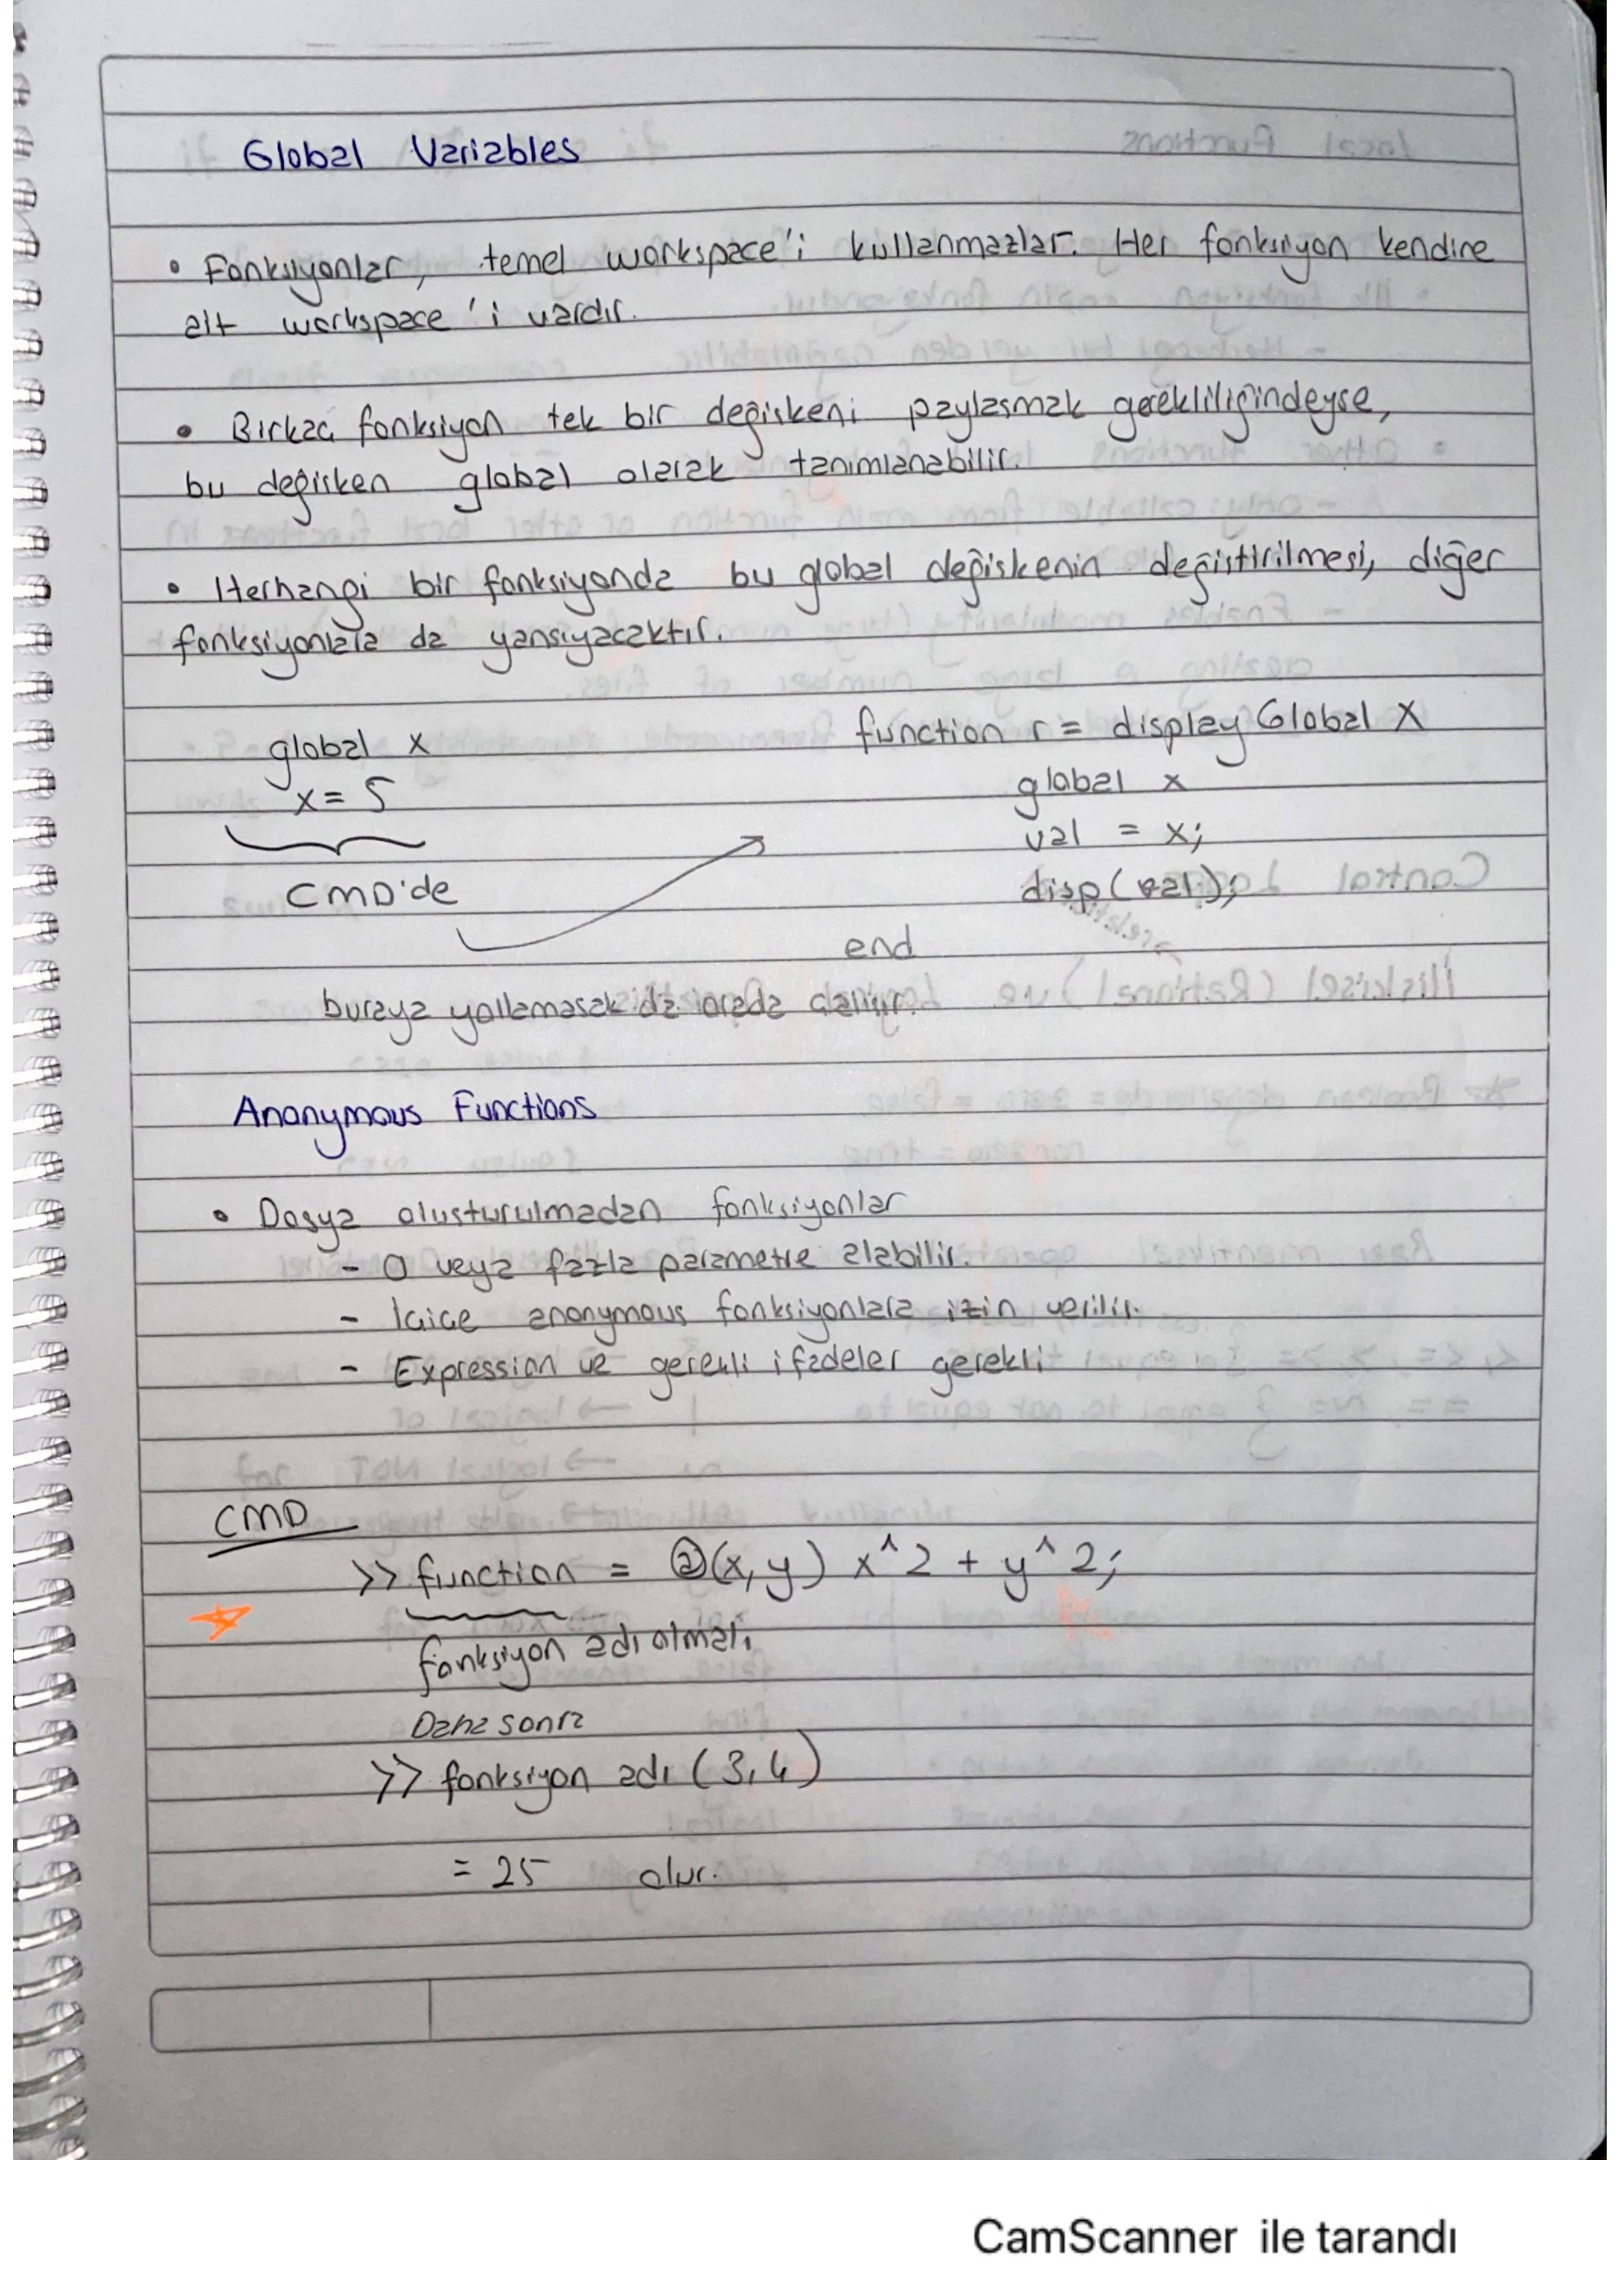 Global Variables
• Fonksiyonlar, temel workspace'i kullanmazlar. Her fonksiyon kendine
alt workspace'i vardır.
• Birkaç fonksiyon tek bir değişkeni paylaşmak gerekliliğindeyse,
bu değişken global olarak tanımlanabilir.
• Herhangi bir fonksiyonda bu global değişkenin değiştirilmesi, diğer
fonksiyonlara da yansıyacaktır.
global x
x = 5
CMD'de
function r = display Global X
global x
val = x;
disp(val);
end
buraya yollamasak da orada çalışır.
Anonymous Functions
• Dosya oluşturulmadan fonksiyonlar
- 0 veya fazla parametre alabilir.
- İçiçe anonymous fonksiyonlara izin verilir.
- Expression ve gerekli ifadeler gerekli
CMD
>> function = @(x,y) x^2 + y^2;
fonksiyon adı olmalı
Daha sonra
>> fonksiyon adı (3,4)
= 25 olur.
CamScanner ile tarandı